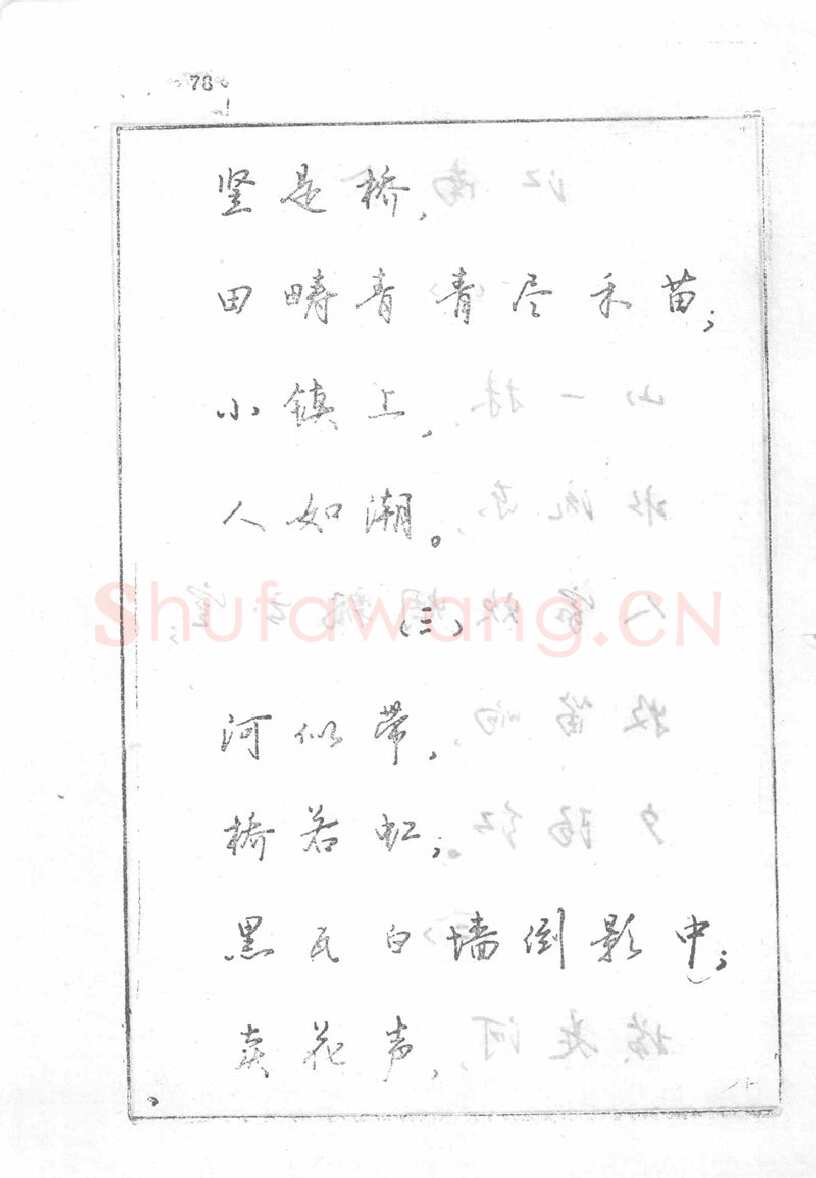 78
竖是桥，
田畴青青尽禾苗；
小镇上，
人如潮。
Shufawang.CN
（三）
河似带，
桥若虹；
黑瓦白墙倒影中；
卖花声，